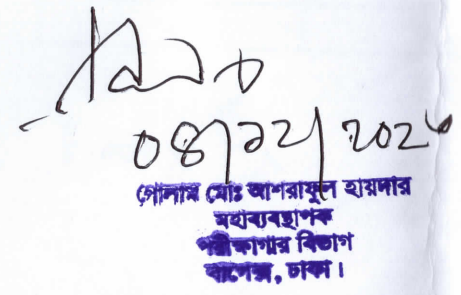 গোলাম মোঃ আশরাফুল হায়দার
মহাব্যবস্থাপক
পরীক্ষাগার বিভাগ
বাপেক্স, ঢাকা।